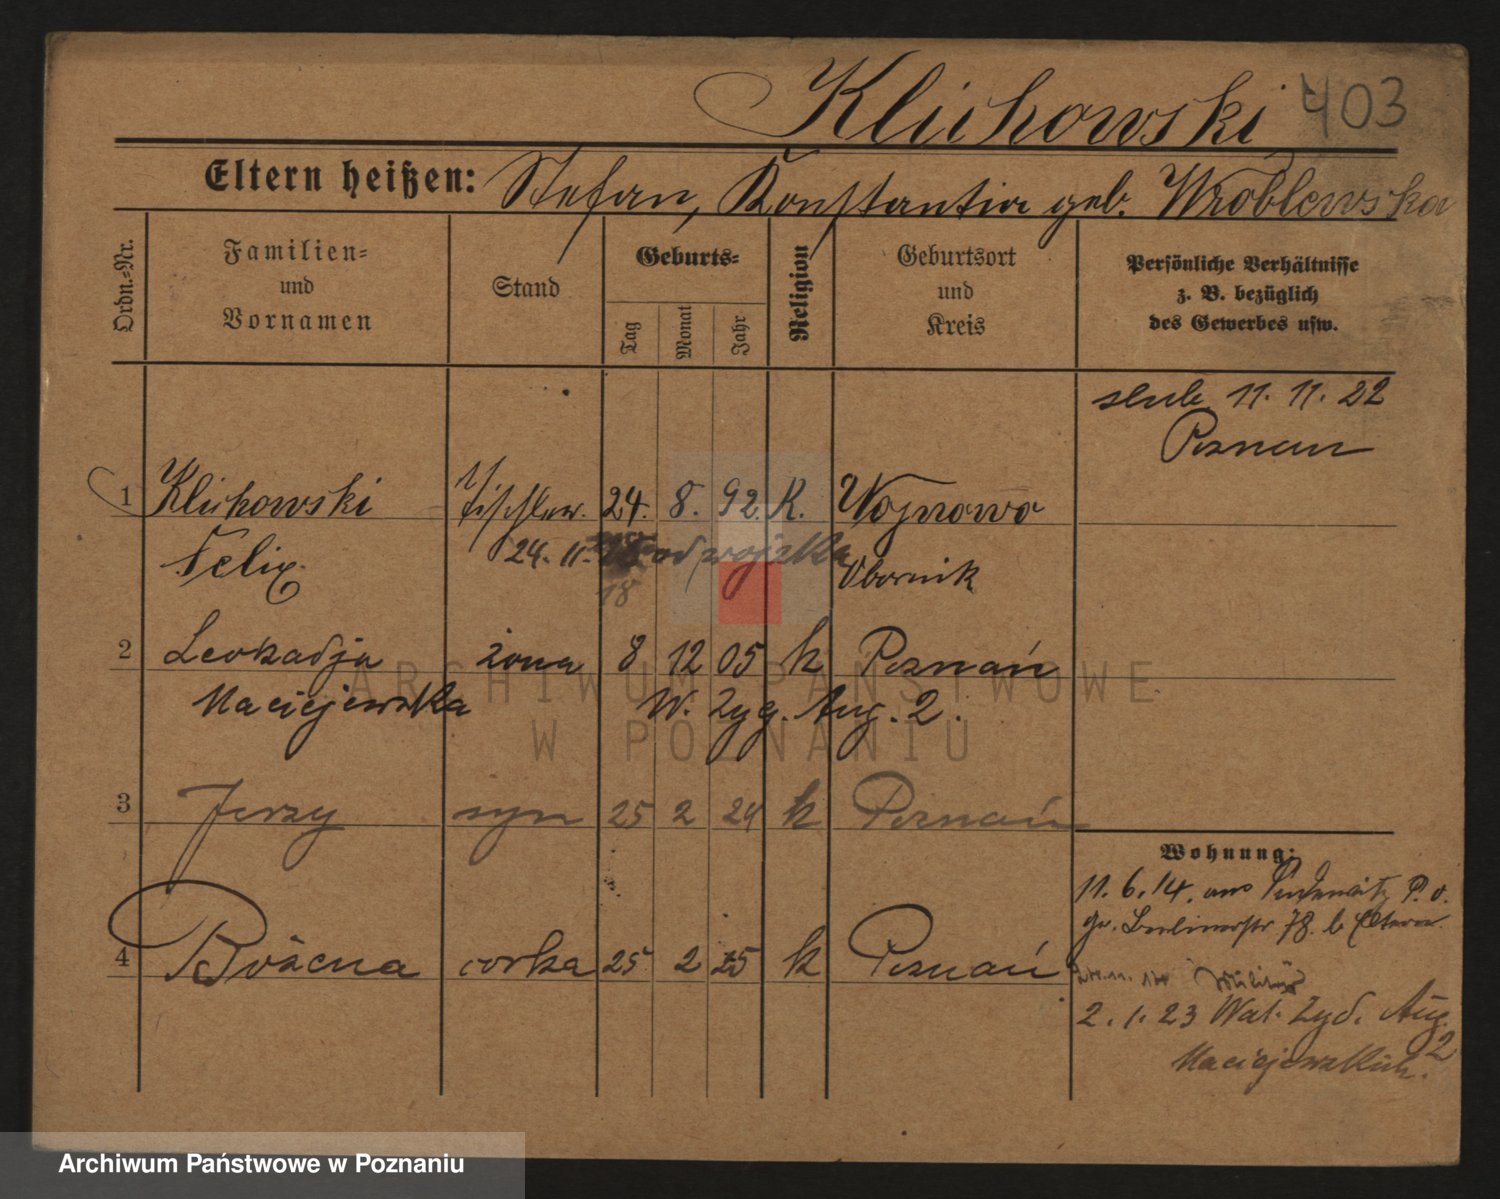 Klichowski 403
Eltern heißen: Stefan, Konstantia geb. Wróblewska
Ordn.-Nr.
Familien-
und
Vornamen
Stand
Geburts-
Tag
Monat
Jahr
Religion
Geburtsort
und
Kreis
Persönliche Verhältnisse
z. B. bezüglich
des Gewerbes usw.
slub 11. 11. 22
Poznan
1 Klichowski Tischler. 24. 8. 92. K. Wojnowo
Felix 24. 11. 18 od wojska Obornik
2 Leokadja żona 8 12 05 k Poznań
Maciejewska W. Zyg. Aug. 2.
3 Jerzy syn 25 2 24 k Poznań
4 Bożena corka 25 2 25 k Poznań
Wohnung:
11. 6. 14. aus Pudewitz P. o.
Gr. Berlinerstr 78. b Eltern
Militär
2. 1. 23 Wał. Zyg. Aug. 2
Maciejewskich.
Archiwum Państwowe w Poznaniu
ARCHIWUM PAŃSTWOWE
W POZNANIU